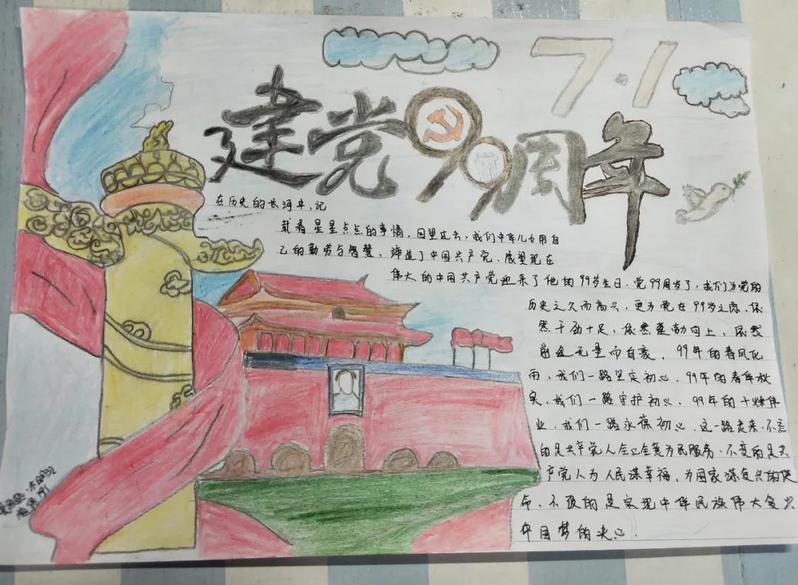 7.1
建党99周年
在历史的长河中，记
载着星星点点的事情，回望过去，我们中华儿女用自
己的勤劳与智慧，缔造了中国共产党，展望现在
伟大的中国共产党迎来了他的99岁生日，党99周岁了，我们为党的
历史之久而高兴，更为党在99岁之际，依
然干劲十足，依然蓬勃向上，依然
前途无量而自豪，99年的春风化
雨，我们一路坚定初心，99年的春华秋
实，我们一路守护初心，99年的
业，我们一路永葆初心，这一路走来，不变
的是共产党人全心全意为民服务，不变的是共
产党人为人民谋幸福，为国家谋复兴的使
命，不变的是实现中华民族伟大复兴
中国梦的决心！